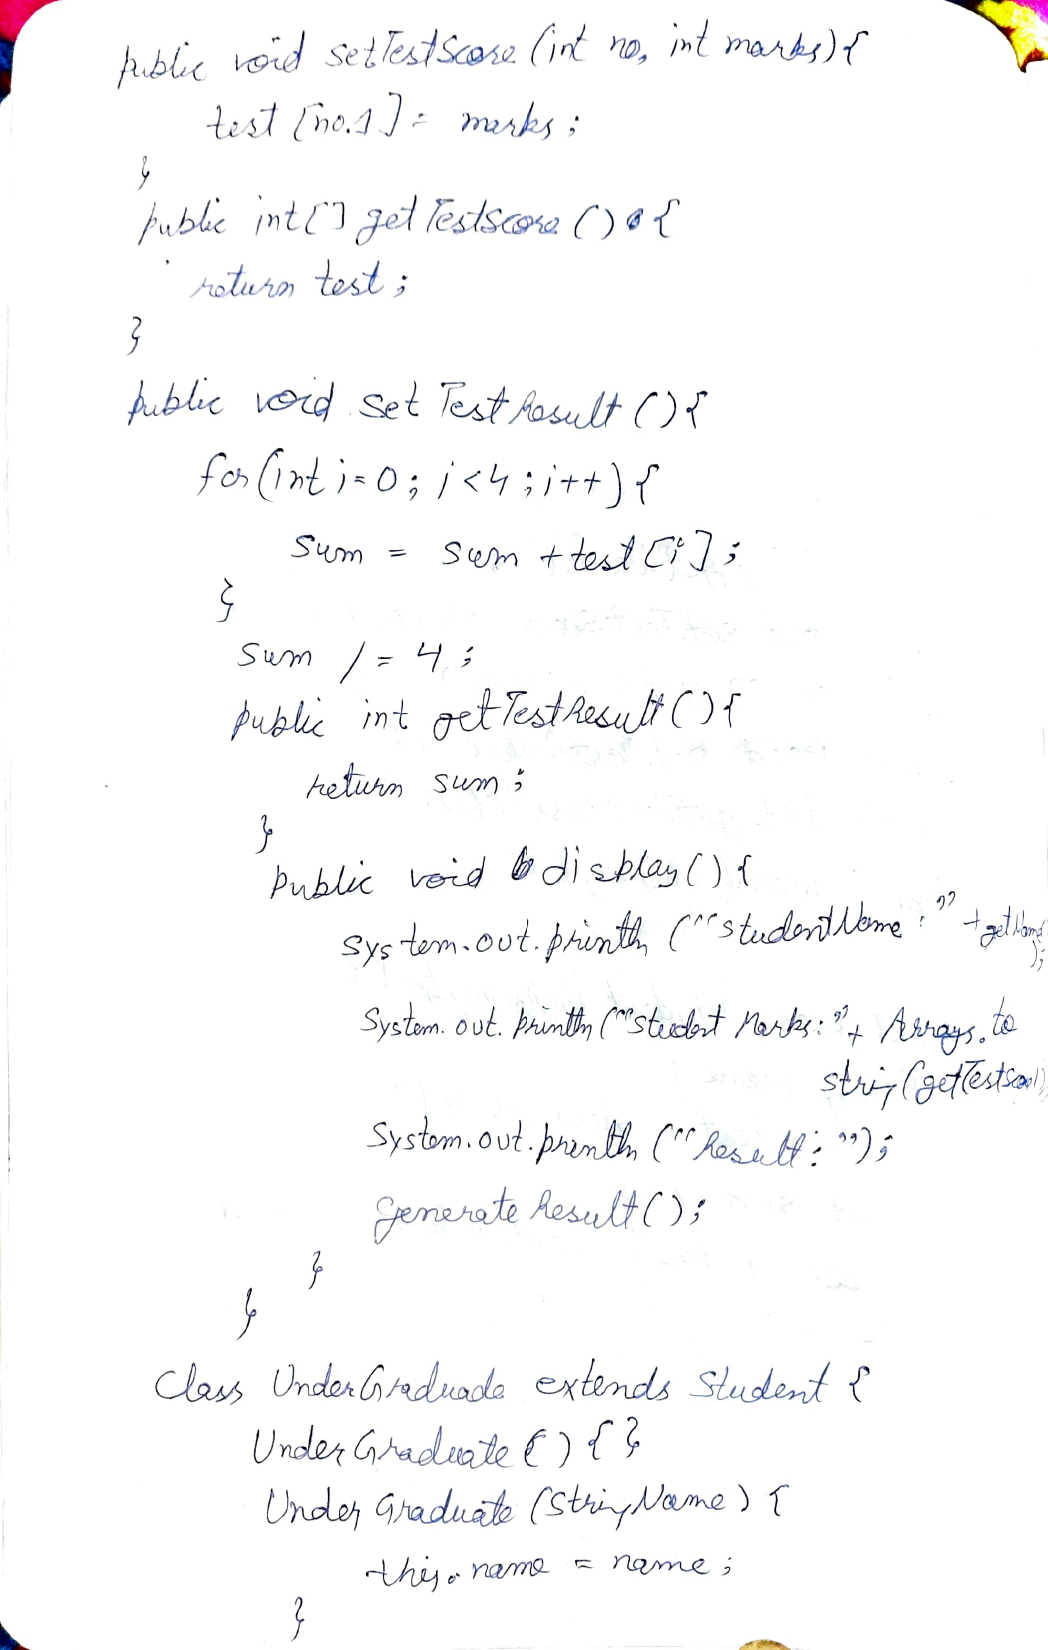 public void setTestScore (int no, int marks) {
test [no.1] = marks ;
}
public int[] getTestscore () {
return test ;
}
public void set TestResult () {
for (int i=0; i<4; i++) {
Sum = Sum + test [i] ;
}
Sum /= 4 ;
public int getTestResult () {
return sum ;
}
public void display () {
System.out.println (""studentName : "" + getName
);
System.out.println (""student Marks: "" + Arrays.to
string (getTestscore()
System.out.println (""Result: "") ;
Generate Result () ;
}
}
Class UnderGraduade extends Student {
UnderGraduate () { }
UnderGraduate (String Name) {
this.name = name ;
}